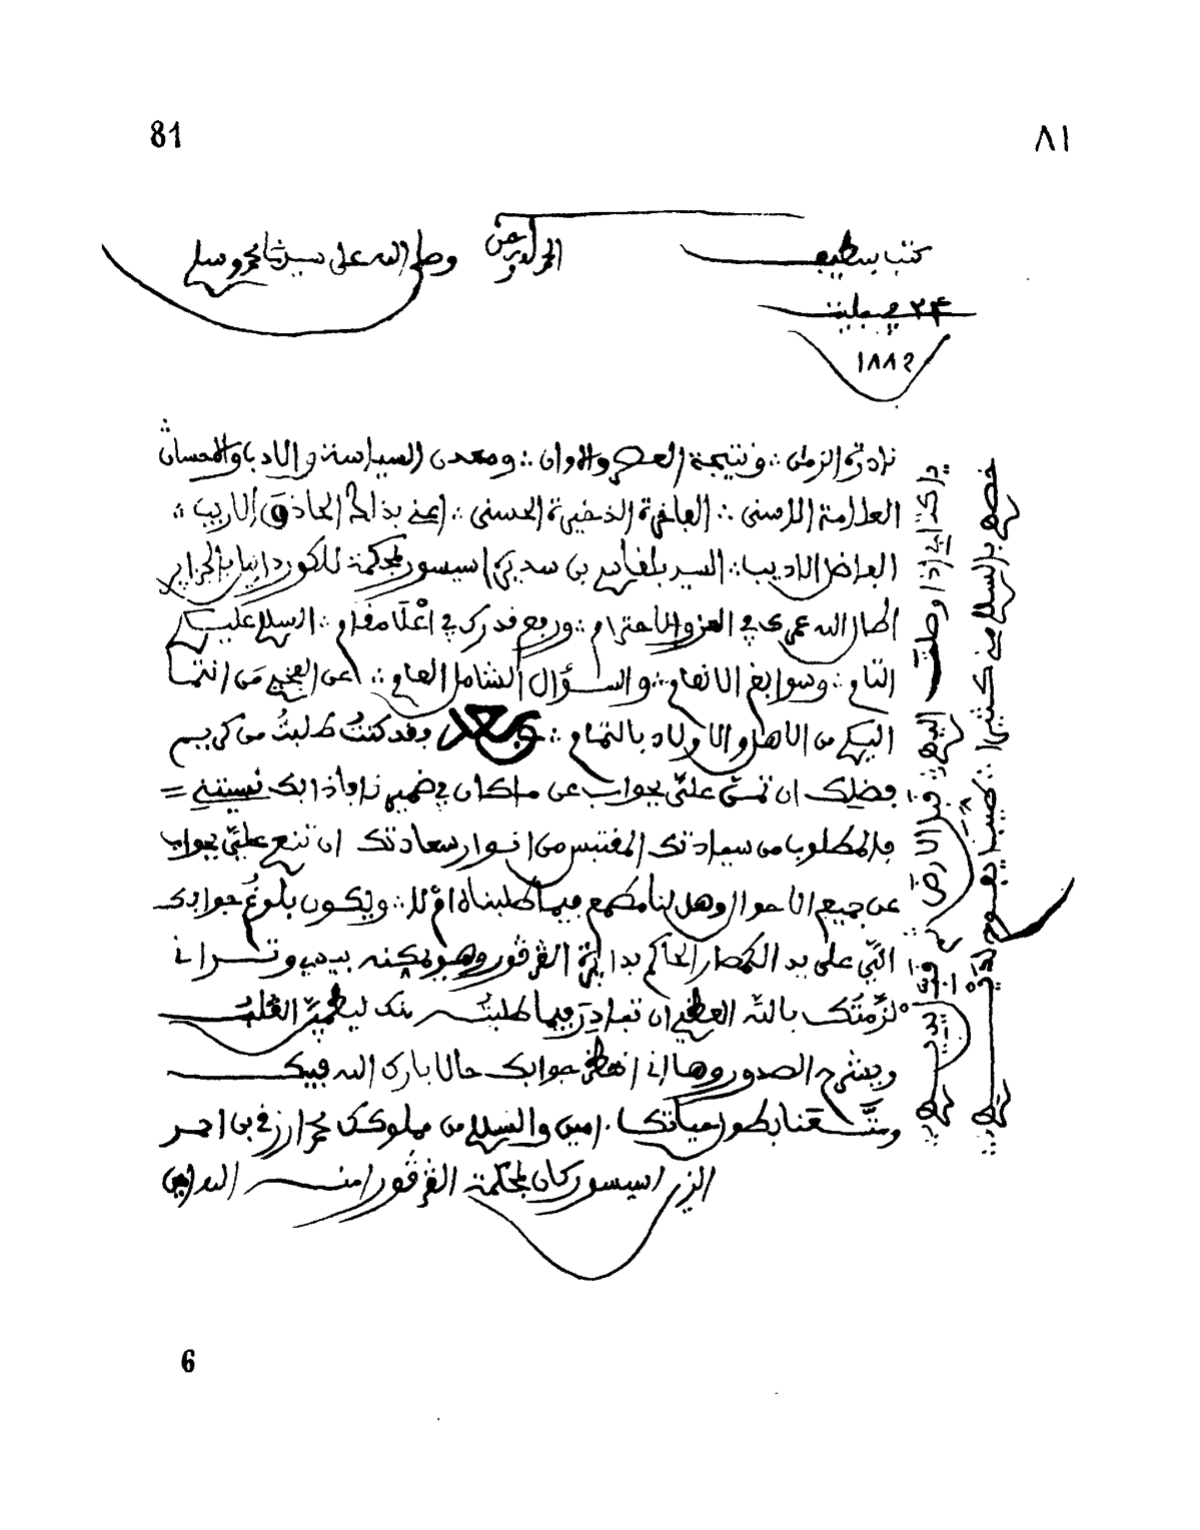 81
٨١
الحمد لله وحده
وصلى الله على سيدنا محمد وسلم
كتب بسطيف
٢٤ جليت
١٨٨٢
نادرة الزمان ∴ ونتيجة العصر والاوان ∴ ومعدن السياسة والادب والاحسان
العلامة الاسنى ∴ الفاخرة الذخيرة الحسنى ∴ اعني بذلك الحاذق الاريب ∴
الفاضل الاديب ∴ السيد بلقاسم بن سديرة اسيسور بمحكمة للكور دابيل بالجزاير
اطال الله عمرك في العز والاحترام ∴ ورفع قدرك في اعْلَا مقام ∴ السلام عليكم
التام ∴ وسوابغ الانعام ∴ والسؤال الشامل العام ∴ عن من انتما
اليكم من الاهل والاولاد بالتمام ∴ وبعد فقد كنتُ طلبتُ من كريم
فضلك ان تمنّ عليّ بجواب عن ما كان في ضميرنا
فالمطلوب من سيادتك المقتبس من انوار سعادتك ان تنعم عليّ بجواب
عن جميع الاحوال وهل لنا مطمع فيما طلبناه ام لا ∴ ويكون بلوغُ جوابك
اليّ على يد الحاكم بدايرة القرڤور وهو يمكنه بيدي وتراني
لزّمتُك بالله العظيم ان تبادِرَ فيما طلبتُه منك ليطمئنّ القلب
وينشرح الصدور وها اني انتظر جوابك حالا بارك الله فيك
ومتَّعنا بطول حياتك ٠ امين والسلام من مملوكك محمد ارزقي بن احمد
الزر اسيسور كان بمحكمة القرڤور امنه الله امين
يا كتابي اذا وصلت اليهم ∴ قبل الارض بين يديهم
خصهم بالسلام مني كثيرا ∴ لديهم
6